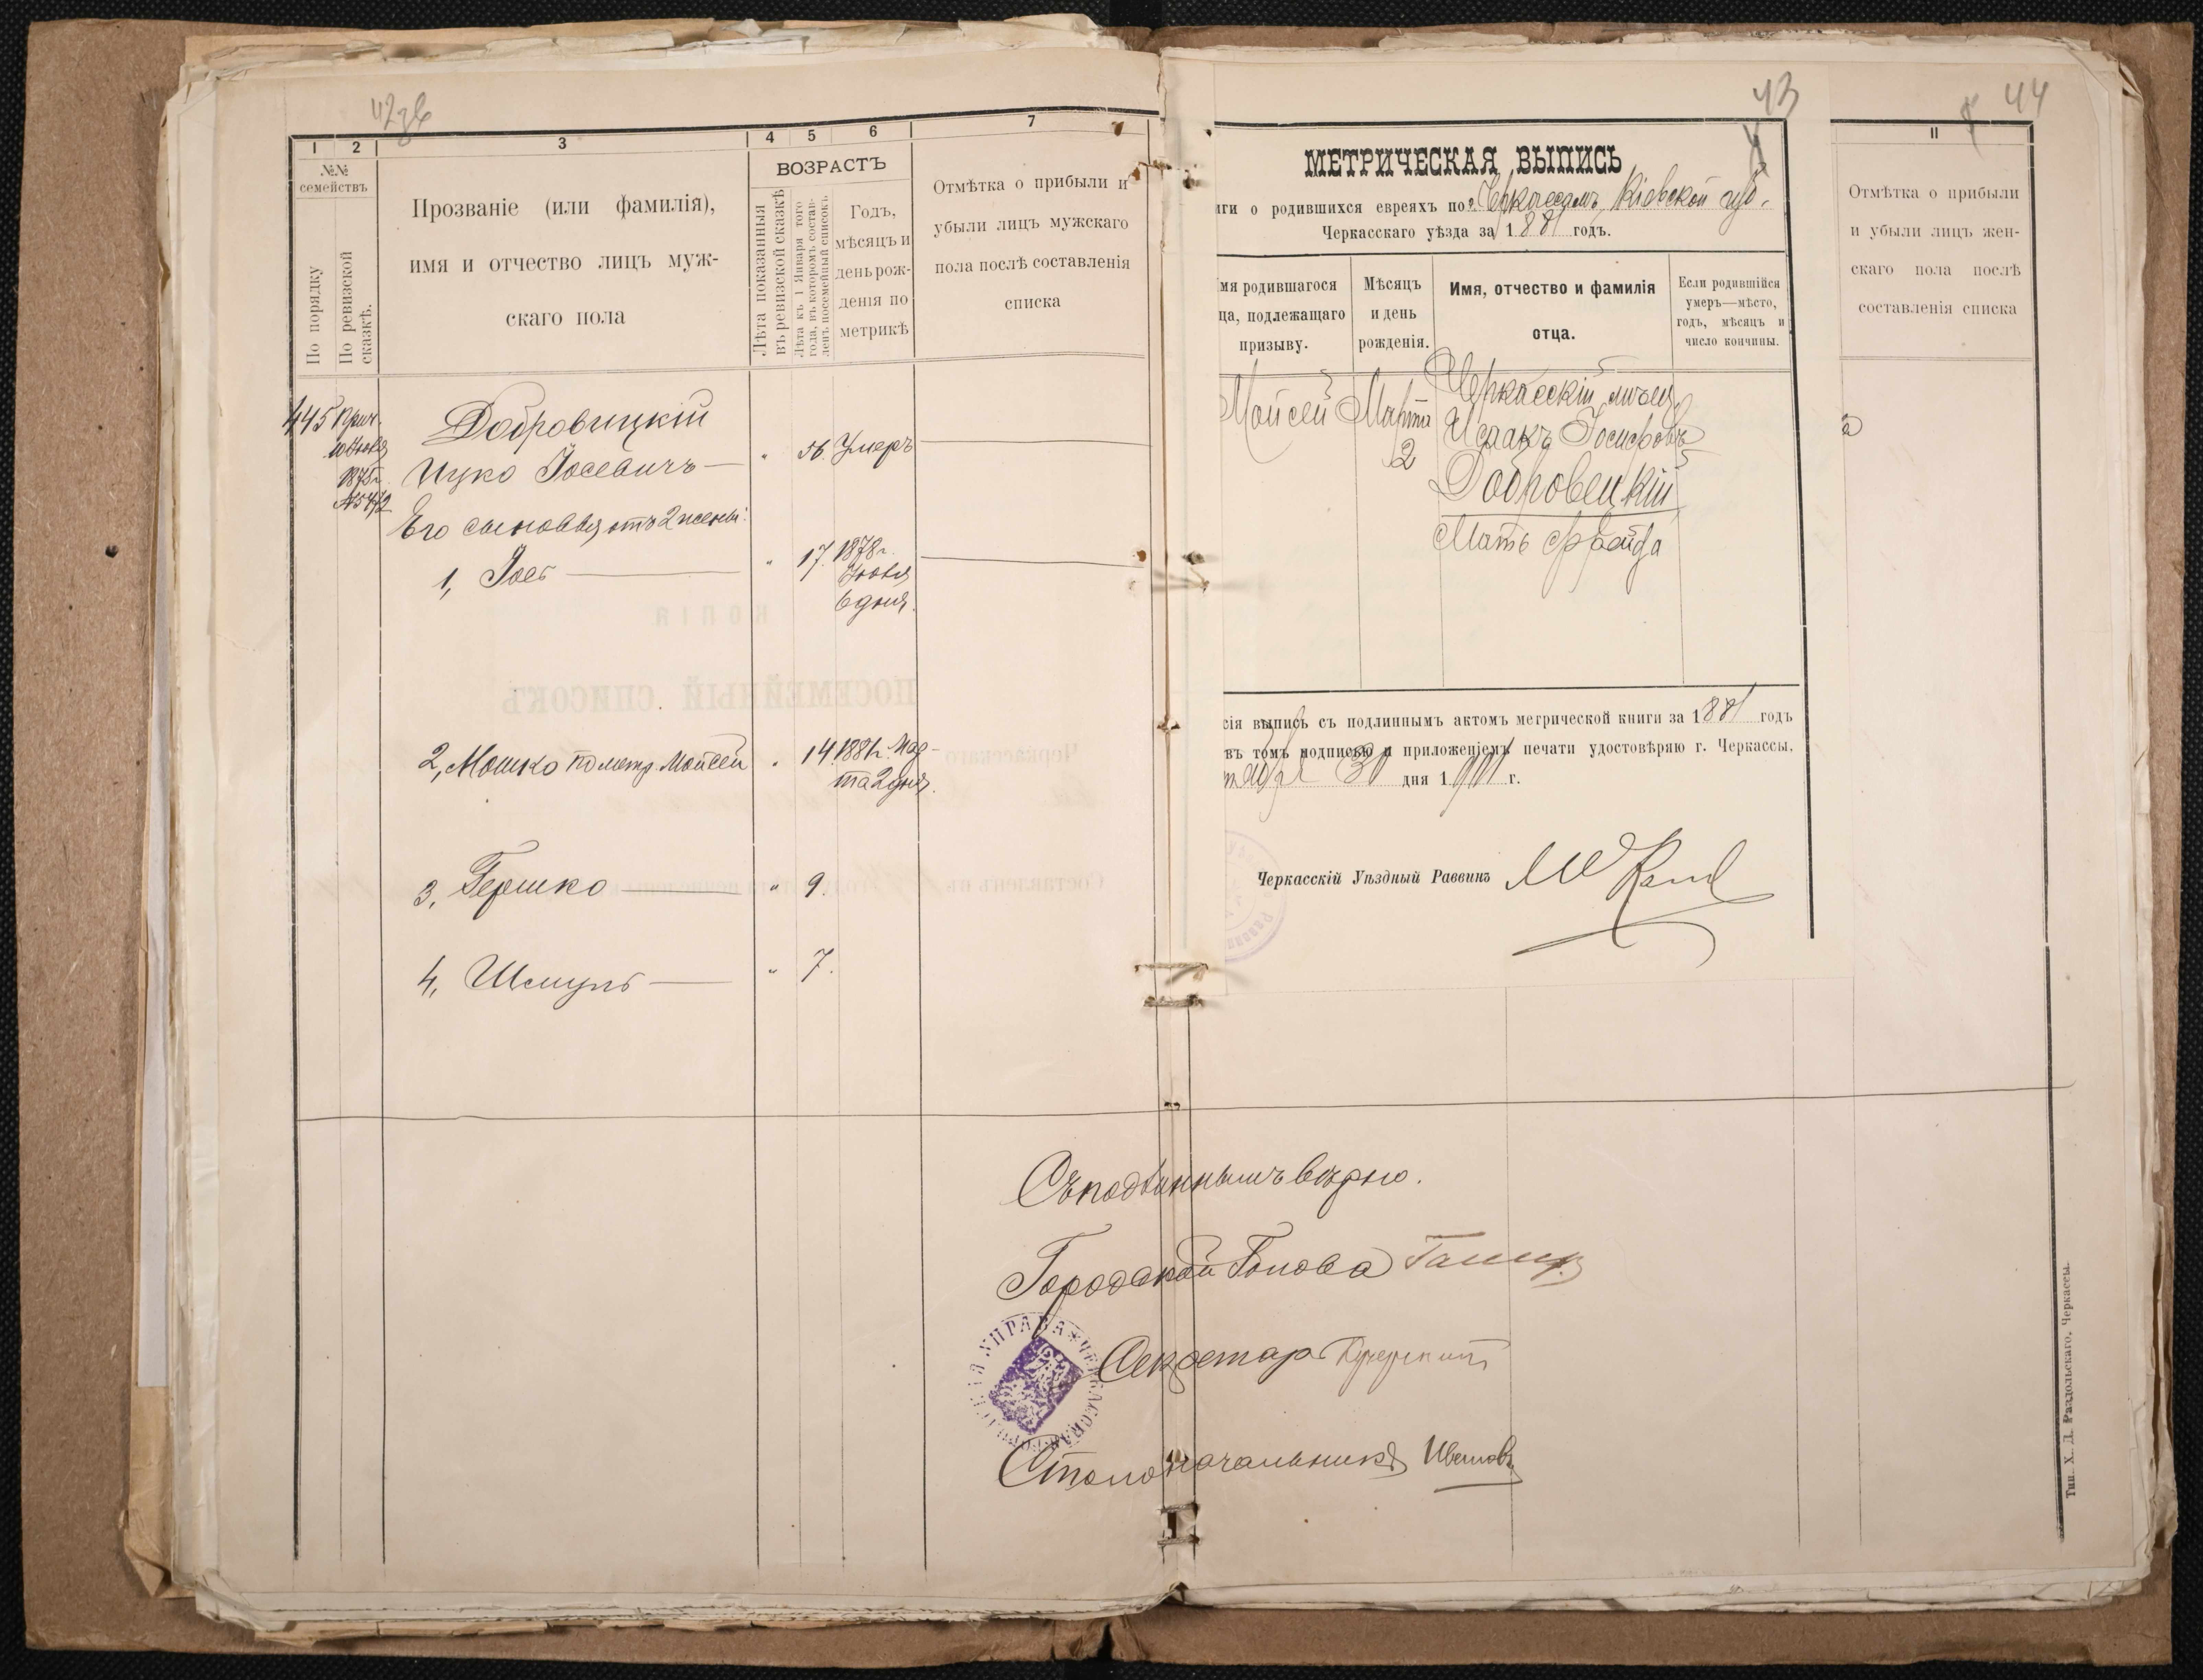 42 зв
1 2 3 4 5 6 7
№№ семействъ
По порядку
По ревизской сказкѣ.
Прозваніе (или фамилія),
имя и отчество лицъ муж-
скаго пола
ВОЗРАСТЪ
Лѣта показанныя
въ ревизской сказкѣ
Лѣта къ 1 Января того
года, въ которомъ состав-
ленъ посемейный списокъ.
Годъ,
мѣсяцъ и
день рож-
денія по
метрикѣ
Отмѣтка о прибыли и
убыли лицъ мужскаго
пола послѣ составленія
списка
445 Прич.
10 Июня
1875 г.
№ 5472
Добровицкій
Ицко Іосевичъ — " 56. Умеръ
Его сыновья отъ 2 жены:
1, Іось — " 17. 1878 г.
Июня
6 дня.
2, Мошко по метр. Мойсей " 14. 1881 г. Мар-
та 2 дня.
3, Гершко — " 9.
4, Шмуль — " 7.
43
МЕТРИЧЕСКАЯ ВЫПИСЬ
иги о родившихся евреяхъ по г. Черкассамъ, Кіевской губ.
Черкасскаго уѣзда за 1881 годъ.
Имя родившагося
ца, подлежащаго
призыву.
Мѣсяцъ
и день
рожденія.
Имя, отчество и фамилія
отца.
Если родившійся
умеръ—мѣсто,
годъ, мѣсяцъ и
число кончины.
Мойсей Марта
2
Черкасскій мѣщ.
Исаакъ Іосифовъ
Добровецкій
Мать Фрейда
сія выпись съ подлиннымъ актомъ метрической книги за 1881 годъ
въ томъ подписью и приложеніемъ печати удостовѣряю г. Черкассы,
30 дня 1901 г.
Черкасскій Уѣздный Раввинъ
44
11
Отмѣтка о прибыли
и убыли лицъ жен-
скаго пола послѣ
составленія списка
а
Съ подлиннымъ вѣрно.
Городской Голова
УПРАВА * ЧЕРКАССКАЯ
Секретарь
Столоначальникъ
Тип. Х. Д. Раздольскаго, Черкассы.